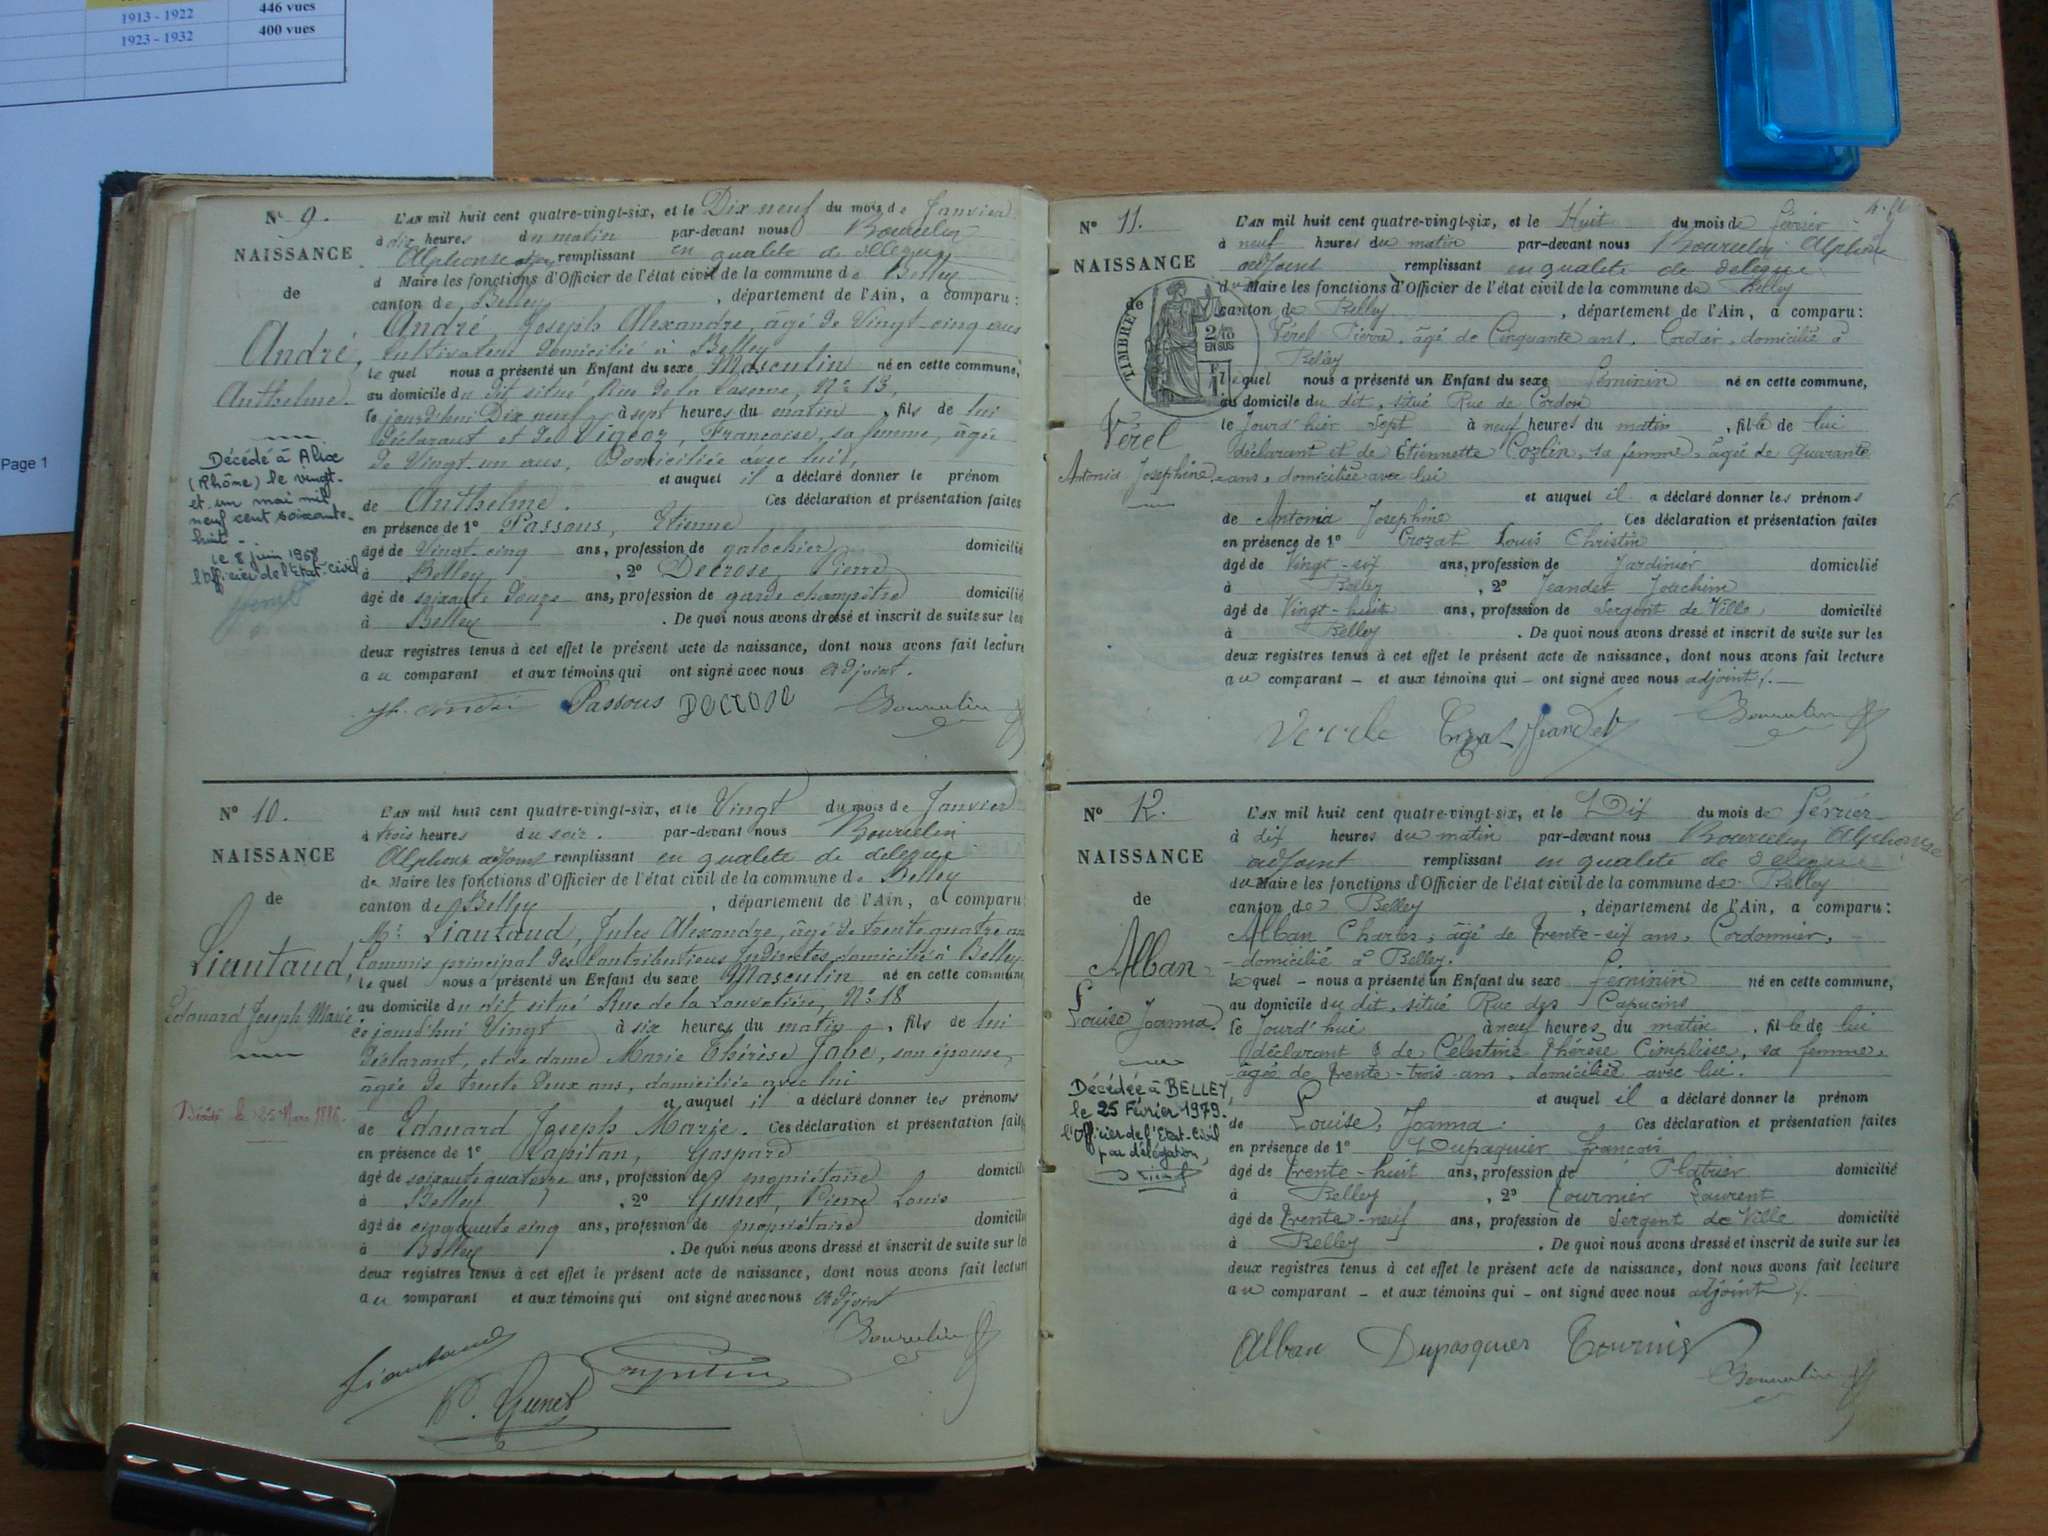 1913 - 1922
446 vues
1923 - 1932
400 vues
Page 1
N° 9.
NAISSANCE
de
André,
Anthelme.
Décédé à Alix
(Rhône) le vingt-
et un mai mil
neuf cent soixante-
huit -.
le 8 juin 1968
l'officier de l'Etat-civil
L'AN mil huit cent quatre-vingt-six, et le Dix neuf du mois de Janvier
à dix heures du matin par-devant nous Bourcelin
Alphonse adjoint remplissant en qualité de délégué
d Maire les fonctions d'Officier de l'état civil de la commune de Belley
canton de Belley, département de l'Ain, a comparu :
André, Joseph Alexandre, âgé de Vingt-cinq ans
Cultivateur domicilié à Belley
lequel nous a présenté un Enfant du sexe Masculin né en cette commune,
au domicile du dit situé Rue de la N° 13,
le jourd'hui Dix neuf, à sept heures du matin, fils de lui
déclarant et de Vigeoz, Françoise, sa femme, âgée
de Vingt-un ans, Domiciliée avec lui,
et auquel il a déclaré donner le prénom
de Anthelme. Ces déclaration et présentation faites
en présence de 1° Passous, Etienne
âgé de Vingt cinq ans, profession de galochier domicilié
à Belley, 2° Decrose Pierre
âgé de soixante douze ans, profession de garde champêtre domicilié
à Belley. De quoi nous avons dressé et inscrit de suite sur les
deux registres tenus à cet effet le présent acte de naissance, dont nous avons fait lecture
au comparant et aux témoins qui ont signé avec nous adjoint.
Jh. André Passous Decrose Bourcelin
N° 10.
NAISSANCE
de
Liautaud,
Edouard Joseph Marie
Décédé le 25 Mars 1886.
L'AN mil huit cent quatre-vingt-six, et le Vingt du mois de Janvier
à trois heures du soir. par-devant nous Bourcelin
Alphonse adjoint remplissant en qualité de délégué
de Maire les fonctions d'Officier de l'état civil de la commune de Belley
canton de Belley, département de l'Ain, a comparu
Mr Liautaud, Jules Alexandre, âgé de trente quatre ans
Commis principal des Contributions Indirectes domicilié à Belley
lequel nous a présenté un Enfant du sexe Masculin né en cette commune
au domicile du dit, situé Rue de la Louvatière, N° 18
ce jourd'hui Vingt à six heures du matin, fils de lui
déclarant, et de dame Marie Thérèse Jabe, son épouse,
âgée de trente deux ans, domiciliée avec lui
et auquel il a déclaré donner les prénoms
de Edouard Joseph Marie. Ces déclaration et présentation faites
en présence de 1° Capitan, Gaspard
âgé de soixante quatorze ans, profession de propriétaire domicilié
à Belley, 2° Gunet, Pierre Louis
âgé de cinquante cinq ans, profession de propriétaire domicilié
à Belley. De quoi nous avons dressé et inscrit de suite sur les
deux registres tenus à cet effet le présent acte de naissance, dont nous avons fait lecture
au comparant et aux témoins qui ont signé avec nous adjoint
Liautaud Capitan Bourcelin
P. Gunet
N° 11.
NAISSANCE
de
TIMBRE
2/10
EN SUS
Vérel
Antonia Josephine.
L'AN mil huit cent quatre-vingt-six, et le Huit du mois de février
à neuf heures du matin par-devant nous Bourcelin Alphonse
adjoint remplissant en qualité de délégué
du Maire les fonctions d'Officier de l'état civil de la commune de Belley
canton de Belley, département de l'Ain, a comparu :
Vérel Pierre, âgé de Cinquante ans, Cordier, domicilié à
Belley
lequel nous a présenté un Enfant du sexe féminin né en cette commune,
au domicile du dit, situé Rue de Cordon
le Jourd'hier Sept à neuf heures du matin, fille de lui
déclarant et de Etiennette Cozlin, sa femme, âgée de Quarante
ans, domiciliée avec lui
et auquel il a déclaré donner les prénoms
de Antonia Josephine Ces déclaration et présentation faites
en présence de 1° Crozat Louis Christin
âgé de Vingt-six ans, profession de Jardinier domicilié
à Belley, 2° Jeandet Joachim
âgé de Vingt-huit ans, profession de Sergent de Ville, domicilié
à Belley. De quoi nous avons dressé et inscrit de suite sur les
deux registres tenus à cet effet le présent acte de naissance, dont nous avons fait lecture
au comparant - et aux témoins qui - ont signé avec nous adjoint /. -
Verele Crozat Jeandet Bourcelin
N° 12.
NAISSANCE
de
Alban
Louise Joanna.
Décédée à BELLEY,
le 25 Février 1979.
l'officier de l'Etat-Civil
par délégation,
L'AN mil huit cent quatre-vingt-six, et le Dix du mois de février
à dix heures du matin par-devant nous Bourcelin Alphonse
adjoint remplissant en qualité de délégué
du Maire les fonctions d'Officier de l'état civil de la commune de Belley
canton de Belley, département de l'Ain, a comparu :
Alban Charles, âgé de trente-six ans, Cordonnier,
domicilié à Belley.
lequel - nous a présenté un Enfant du sexe féminin né en cette commune,
au domicile du dit, situé Rue des Capucins
le Jourd'hui à neuf heures du matin, fille de lui
déclarant & de Célestine Thérèse Cimplice, sa femme,
âgée de trente-trois ans, domiciliée avec lui.
et auquel il a déclaré donner le prénom
de Louise, Joanna. Ces déclaration et présentation faites
en présence de 1° Dupaquier François
âgé de trente-huit ans, profession de Platrier domicilié
à Belley, 2° Tournier Laurent
âgé de trente-neuf ans, profession de Sergent de Ville domicilié
à Belley. De quoi nous avons dressé et inscrit de suite sur les
deux registres tenus à cet effet le présent acte de naissance, dont nous avons fait lecture
au comparant - et aux témoins qui - ont signé avec nous adjoint /. -
Alban Dupasquier Tournier
Bourcelin